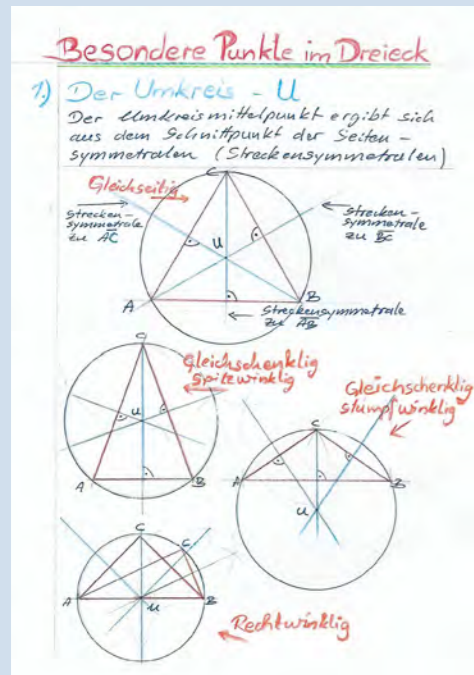 Besondere Punkte im Dreieck
1.) Der Umkreis - U
Der Umkreismittelpunkt ergibt sich
aus dem Schnittpunkt der Seiten-
symmetralen (Streckensymmetralen)
Gleichseitig
C
Strecken-
symmetrale
zu AC
Strecken-
symmetrale
zu BC
U
A
B
Streckensymmetrale
zu AB
C
Gleichschenklig
Spitzwinklig
U
A
B
Gleichschenklig
stumpfwinklig
C
A
B
U
C
C
A
U
B
Rechtwinklig